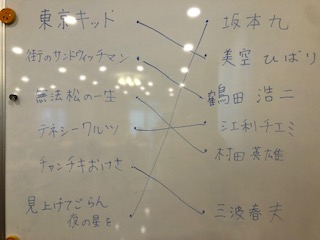 東京キッド
街のサンドウィッチマン
無法松の一生
テネシーワルツ
チャンチキおけさ
見上げてごらん
夜の星を
坂本九
美空ひばり
鶴田浩二
江利チエミ
村田英雄
三波春夫